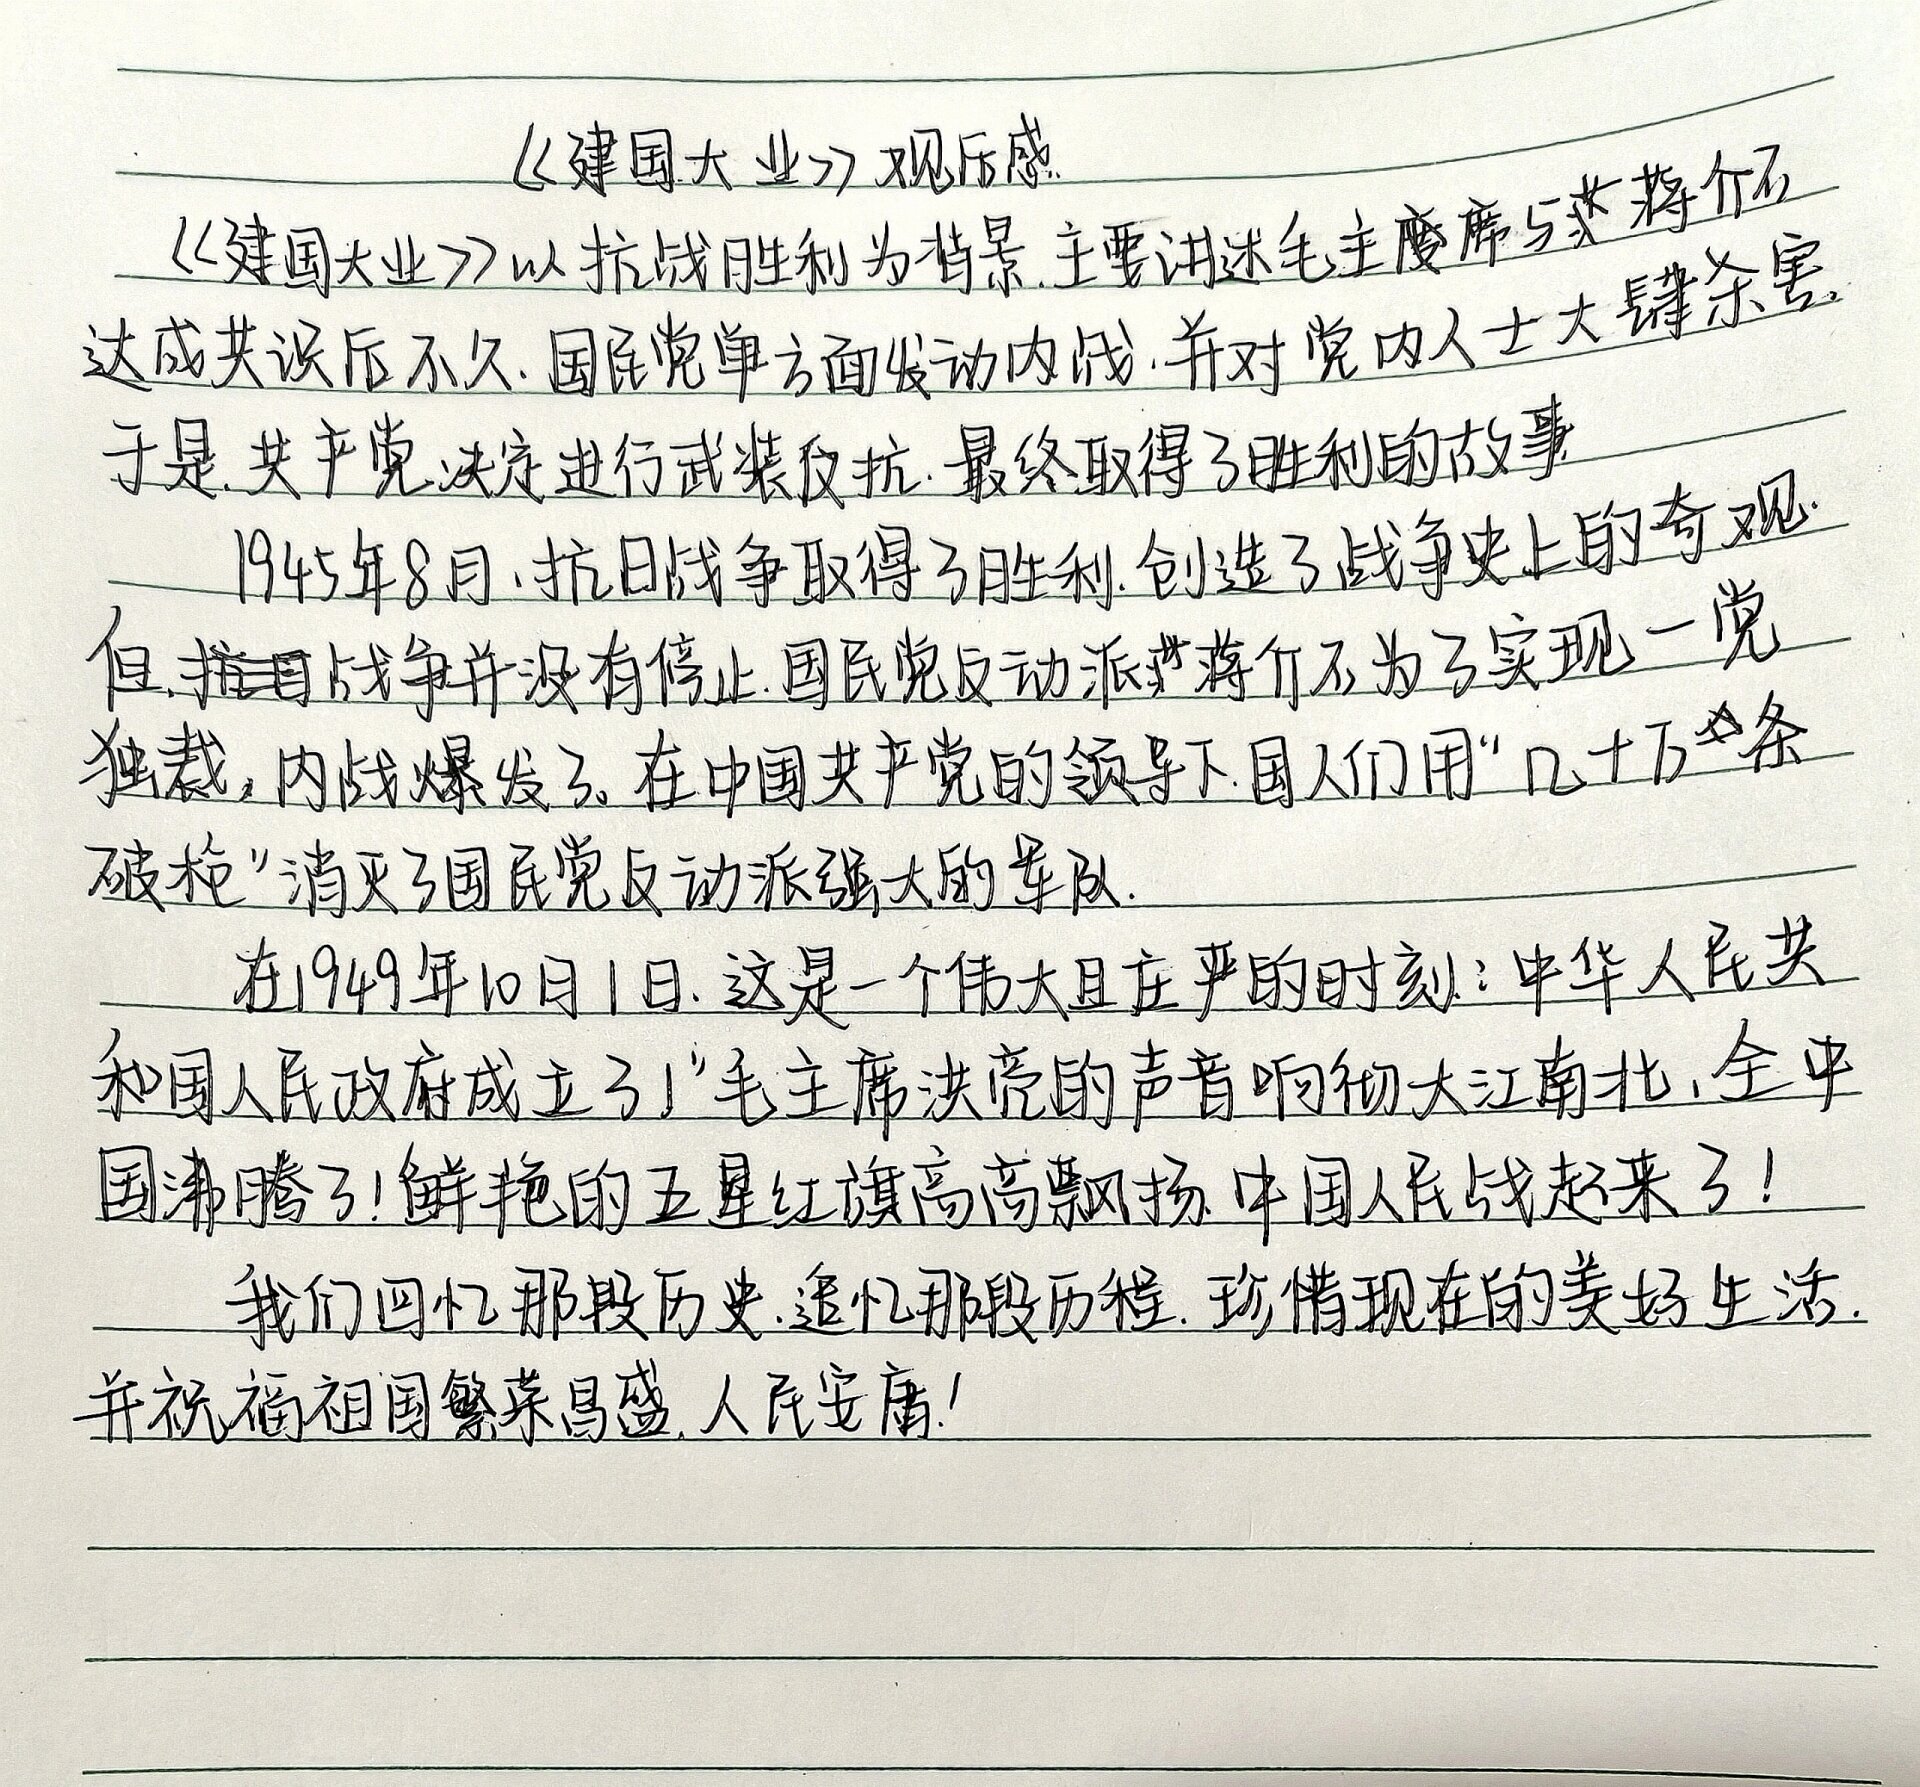 《建国大业》观后感
《建国大业》以抗战胜利为背景.主要讲述毛主席与蒋介石
达成共识后不久.国民党单方面发动内战.并对党内人士大肆杀害.
于是.共产党决定进行武装反抗.最终取得了胜利的故事
1945年8月.抗日战争取得了胜利.创造了战争史上的奇观.
但.战争并没有停止.国民党反动派蒋介石为了实现一党
独裁,内战爆发了。在中国共产党的领导下.国人们用“几十万条
破枪”消灭了国民党反动派强大的军队.
在1949年10月1日.这是一个伟大且庄严的时刻:中华人民共
和国人民政府成立了!”毛主席洪亮的声音响彻大江南北,全中
国沸腾了!鲜艳的五星红旗高高飘扬.中国人民战起来了!
我们回忆那段历史.追忆那段历程.珍惜现在的美好生活.
并祝福祖国繁荣昌盛.人民安康!